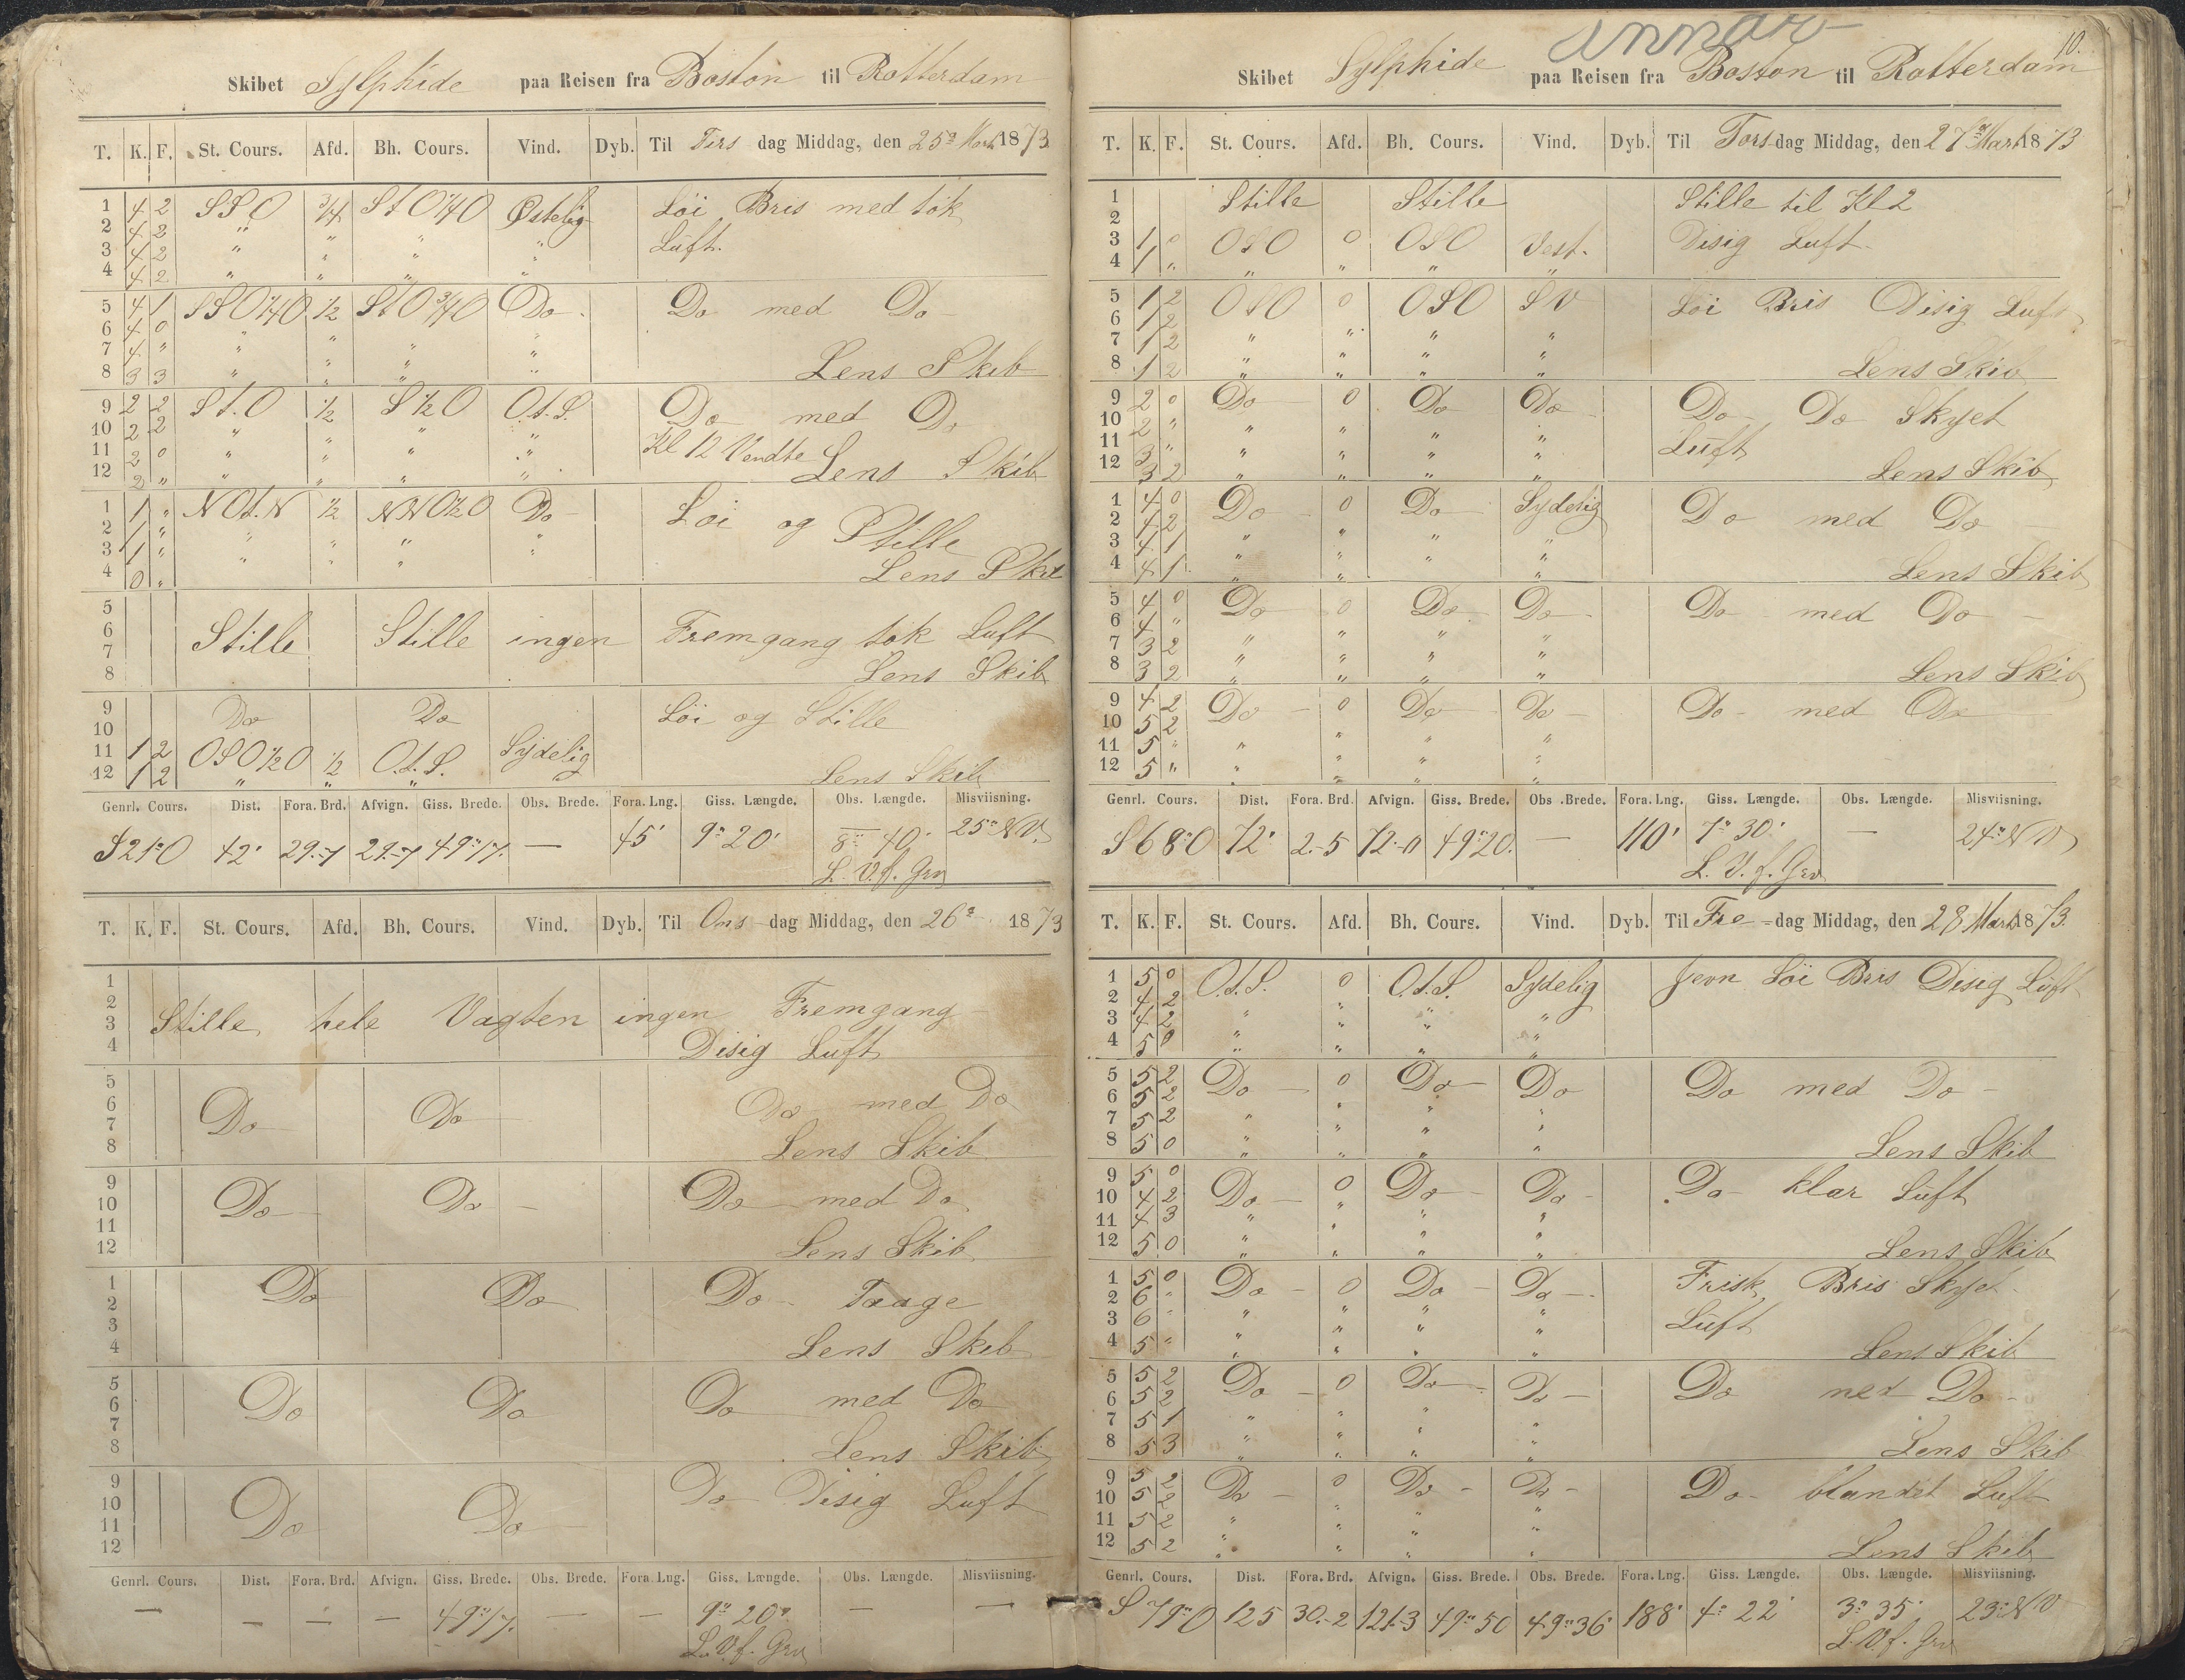 Skibet Sylphide paa Reisen fra Boston til Rotterdam
T. K. F. St. Cours. Afd. Bh. Cours. Vind. Dyb. Til Tirs dag Middag, den 25de Marts 1873
1 4 2 SSO 3/4 StO1/4O Østelig Löi Bris med tök
2 4 2 " " "
3 4 2 " " " " Luft.
4 4 2 " " " "
5 4 1 SSO1/4O 1/2 StO3/4O Do Do med Do
6 4 0 " " " "
7 4 " " " " "
8 3 3 " " " " Lens Skib
9 2 2 St.O 1/2 S1/2O O.t.S. Do med Do
10 2 2 " " " "
11 2 0 " " " " Kl 12 Vendte
12 2 " " " " " Lens Skib
1 1 " NOt.N 1/2 NNO1/2O Do Löi og Stille
2 1 " " " " "
3 1 " " " " "
4 0 " Lens Skib
5
6 Stille Stille ingen Fremgang tök Luft
7
8 Lens Skib
9 Do Do Löi og Stille
10
11 1 2 OSO1/2O 1/2 O.t.S. Sydelig
12 1 2 " " " Lens Skib
Genrl. Cours. Dist. Fora. Brd. Afvign. Giss. Brede. Obs. Brede. Fora. Lng. Giss. Længde. Obs. Længde. Misviisning.
S21°O 42' 29.-7 29.-7 49°17. — 45' 9° 20' 8° 40' 25° NV.
L. V. f. Grv
T. K. F. St. Cours. Afd. Bh. Cours. Vind. Dyb. Til Ons dag Middag, den 26de 1873
1
2
3 Stille hele Vagten ingen Fremgang
4 Disig Luft
5
6
7 Do Do Do med Do
8 Lens Skib
9
10 Do Do Do med Do
11
12 Lens Skib
1 Do Do Do Taage
2
3
4 Lens Skib
5
6 Do Do Do med Do
7
8 Lens Skib
9
10 Do Do Do Disig Luft
11
12
Genrl. Cours. Dist. Fora. Brd. Afvign. Giss. Brede. Obs. Brede. Fora. Lng. Giss. Længde. Obs. Længde. Misviisning.
— — — — 49°17. — — 9° 20' — —
L. V. f. Grv
10.
Skibet Sylphide paa Reisen fra Boston til Rotterdam
T. K. F. St. Cours. Afd. Bh. Cours. Vind. Dyb. Til Tors dag Middag, den 27de Marts 1873
1 Stille Stille Stille til Kl 2
2
3 1 0 OSO 0 OSO Vest. Disig Luft
4 1 " " " " "
5 1 2 OSO 0 OSO SV Löi Bris Disig Luft
6 1 2
7 1 2 " " " "
8 1 2 " " " " Lens Skib
9 2 0 Do 0 Do Do Do Do Skyet
10 2 " " " " "
11 3 " " " " " Luft
12 3 2 " " " " Lens Skib
1 4 0 Do 0 Do Sydelig Do med Do
2 4 2
3 4 1 " " " "
4 4 1 " " " " Lens Skib
5 4 0 Do 0 Do Do Do med Do
6 4 "
7 3 2 " " " "
8 3 2 " " " " Lens Skib
9 4 2 Do 0 Do Do Do med Do
10 5 2
11 5 " " " " "
12 5 " " " " "
Genrl. Cours. Dist. Fora. Brd. Afvign. Giss. Brede. Obs. Brede. Fora. Lng. Giss. Længde. Obs. Længde. Misviisning.
S68°O 72' 2.-5 72.-0 49°20. — 110' 7° 30' — 24° NV
L. V. f. Grv
T. K. F. St. Cours. Afd. Bh. Cours. Vind. Dyb. Til Fre dag Middag, den 28 Marts 1873.
1 5 0 O.t.S. 0 O.t.S. Sydelig Jevn Löi Bris Disig Luft
2 4 2
3 4 2 " " " "
4 5 0 " " " "
5 5 2 Do 0 Do Do Do med Do
6 5 2
7 5 2 " " " "
8 5 0 " " " " Lens Skib
9 5 0 Do 0 Do Do Do klar Luft
10 4 2
11 4 3 " " " "
12 5 0 " " " " Lens Skib
1 5 0 Do 0 Do Do Frisk Bris Skyet
2 6 "
3 6 " " " " " Luft
4 5 " " " " " Lens Skib
5 5 2 Do 0 Do Do Do med Do
6 5 2
7 5 1 " " " "
8 5 3 " " " " Lens Skib
9 5 2 Do 0 Do Do Do blandet Luft
10 5 2
11 5 2 " " " "
12 5 2 " " " " Lens Skib
Genrl. Cours. Dist. Fora. Brd. Afvign. Giss. Brede. Obs. Brede. Fora. Lng. Giss. Længde. Obs. Længde. Misviisning.
S79°O 125 30.-2 121.-3 49°50 49°36' 188' 4° 22' 3° 35' 23° NV
L. V. f. Grv